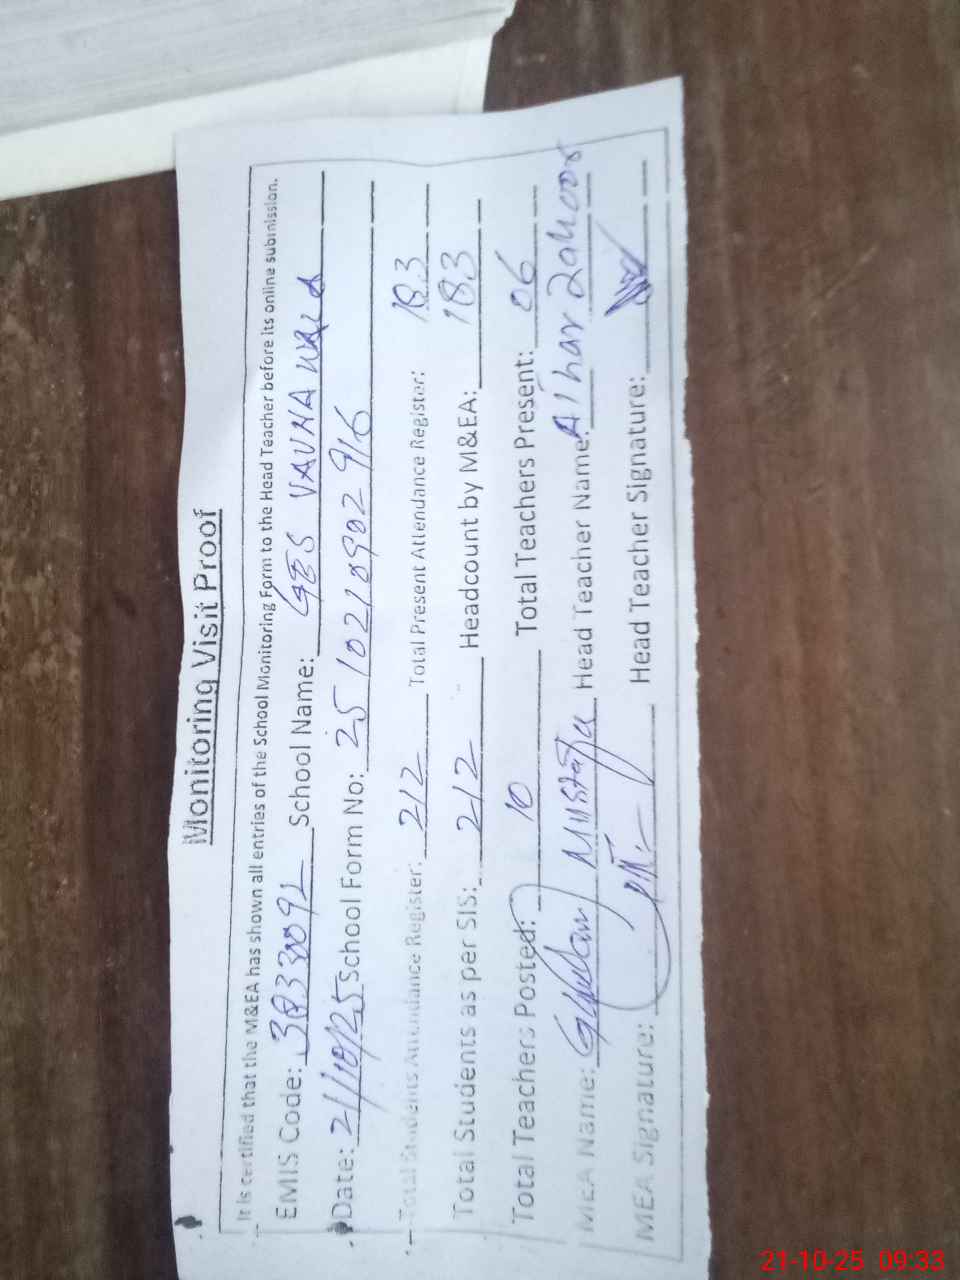 Monitoring Visit Proof
It is certified that the M&EA has shown all entries of the School Monitoring Form to the Head Teacher before its online submission.
EMIS Code: 38330092 School Name: GES
Date: 21/10/25 School Form No: 2510210902916
Total Students Attendance Register: 212 Total Present Attendance Register: 183
Total Students as per SIS: 212 Headcount by M&EA: 183
Total Teachers Posted: 10 Total Teachers Present: 06
MEA Name: Ghulam Mustafa Head Teacher Name: Zahoor
MEA Signature: Head Teacher Signature:
21-10-25 09:33